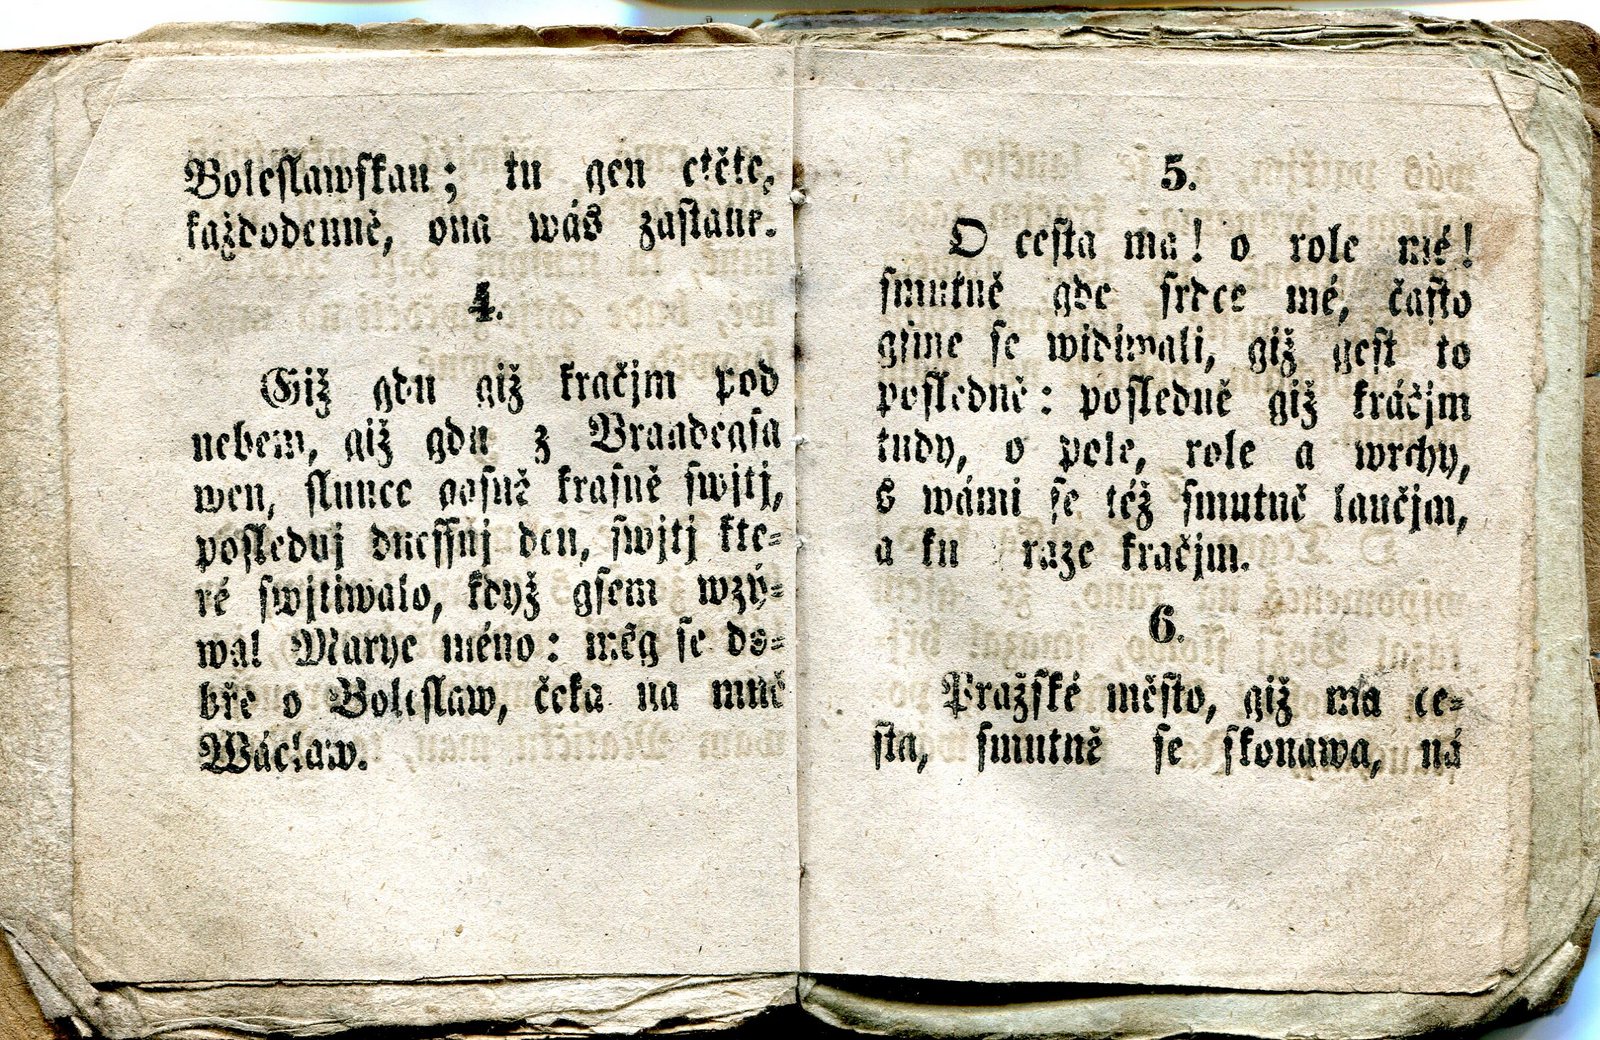 Boleslawſkau; tu gen ctěte,
každodenně, ona wás zaſtane.
4.
Giž gdu giž kračjm pod
nebem, giž gdu z Brandegſa
wen, ſlunce gaſně kraſně ſwjtj,
poſlednj dneſſnj den, ſwjtj kte=
ré ſwjtiwalo, když gſem wzý=
wal Marye méno: měg ſe do=
bře o Boleſlaw, čeka na mně
Wácław.
5.
O ceſta ma! o role mé!
ſmutně gde ſrdce mé, čaſto
gſme ſe widiwali, giž geſt to
poſledně: poſledně giž kráčjm
tudy, o pole, role a wrchy,
S wámi ſe též ſmutně laučjm,
a ku raze kračjm.
6.
Pražſké měſto, giž ma ce=
ſta, ſmutně ſe ſkonawa, ná